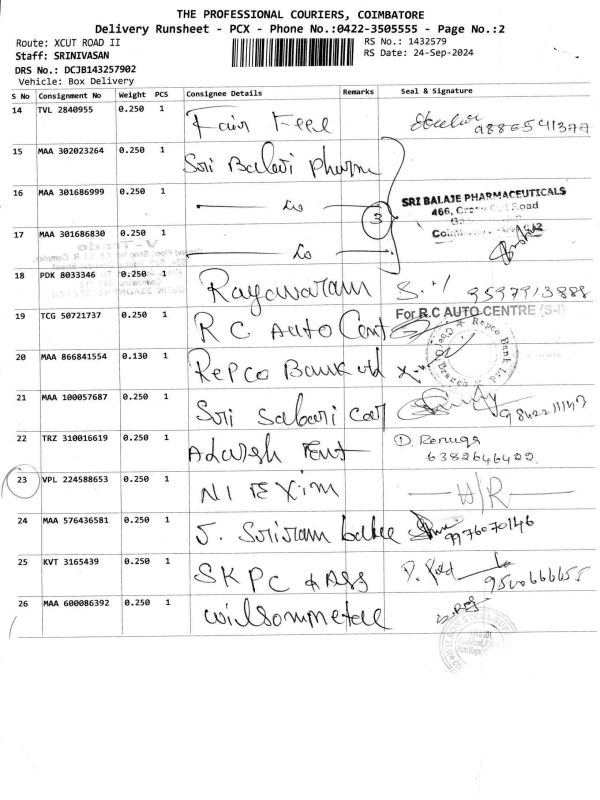 THE PROFESSIONAL COURIERS, COIMBATORE
Delivery Runsheet - PCX - Phone No.:0422-3505555 - Page No.:2
Route: XCUT ROAD II
RS No.: 1432579
Staff: SRINIVASAN
RS Date: 24-Sep-2024
DRS No.: DCJB143257902
Vehicle: Box Delivery
S No Consignment No Weight PCS Consignee Details Remarks Seal & Signature
14 TVL 2840955 0.250 1 Fair Feee 9886541377
15 MAA 302023264 0.250 1 Sri Balaji Pharm
16 MAA 301686999 0.250 1
3
SRI BALAJE PHARMACEUTICALS
466, Cross Cut Road
17 MAA 301686830 0.250 1
18 PDK 8033346 0.250 1 Rayavaram 9597913888
19 TCG 50721737 0.250 1 R C Auto Cent For R.C AUTO CENTRE (S-I)
20 MAA 866841554 0.130 1 Repco Bank Ltd
Repco Bank
21 MAA 100057687 0.250 1 Sri Sabari Car
22 TRZ 310016619 0.250 1 Adarsh Ent D. Renuga
6382646422
23 VPL 224588653 0.250 1 NI EXIM
24 MAA 576436581 0.250 1 J. Sriram 9976070146
25 KVT 3165439 0.250 1 SKPC & Ass 9500666655
26 MAA 600086392 0.250 1 Wilsonmetall